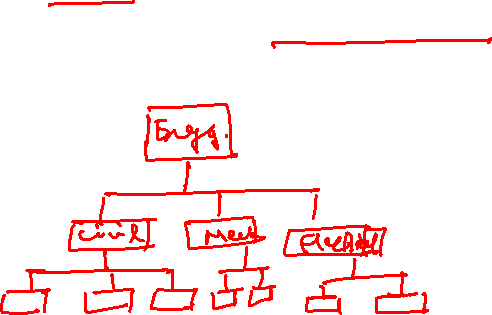 Engg.
Civil
Mech
Electrical